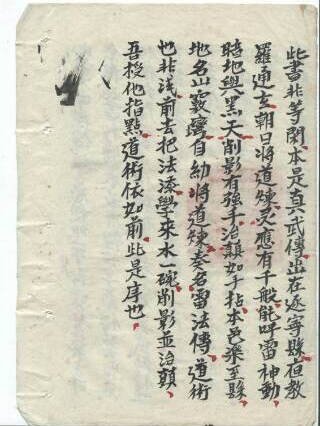 此書非等閑本是真武傳出在逐寧縣亘教
羅通玄朝日將道煉灵應有千般能呼雷神動
時地與黑天削影有強手治顛如手拈本邑樂至縣
地名山 自幼將道煉奏名雷法傳道術
也非浅前去把法添學來水一碗削影並治顛
吾授他指點道術依如前此是序也